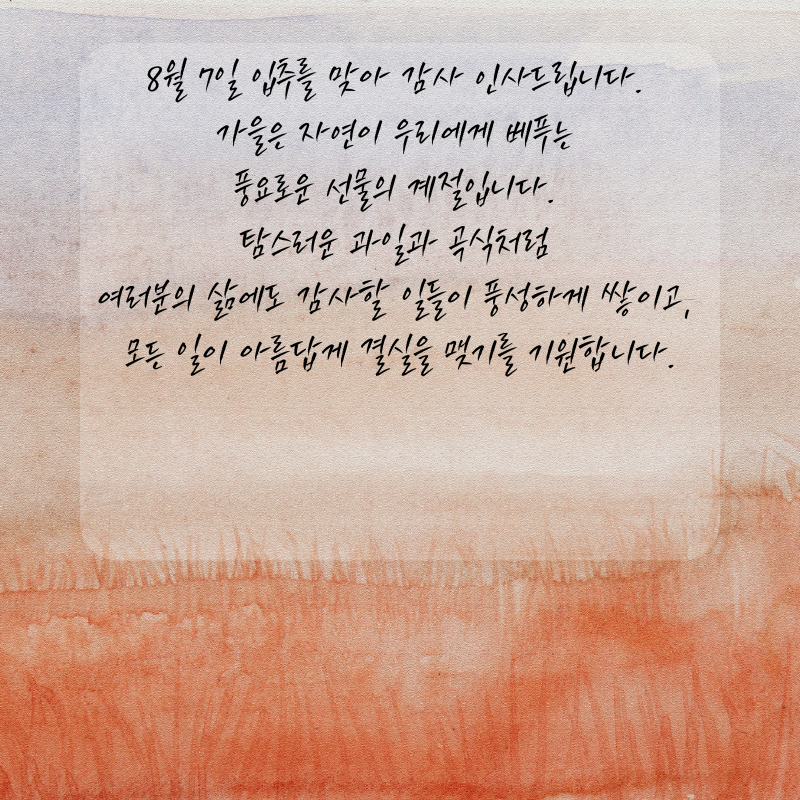 8월 7일 입추를 맞아 감사 인사드립니다.
가을은 자연이 우리에게 베푸는
풍요로운 선물의 계절입니다.
탐스러운 과일과 곡식처럼
여러분의 삶에도 감사할 일들이 풍성하게 쌓이고,
모든 일이 아름답게 결실을 맺기를 기원합니다.